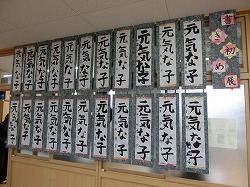 書き初め展
元気な子
元気な子
元気な子
元気な子
元気な子
元気な子
元気な子
元気な子
元気な子
元気な子
元気な子
元気な子
元気な子
元気な子
元気な子
元気な子
元気な子
元気な子
元気な子
元気な子